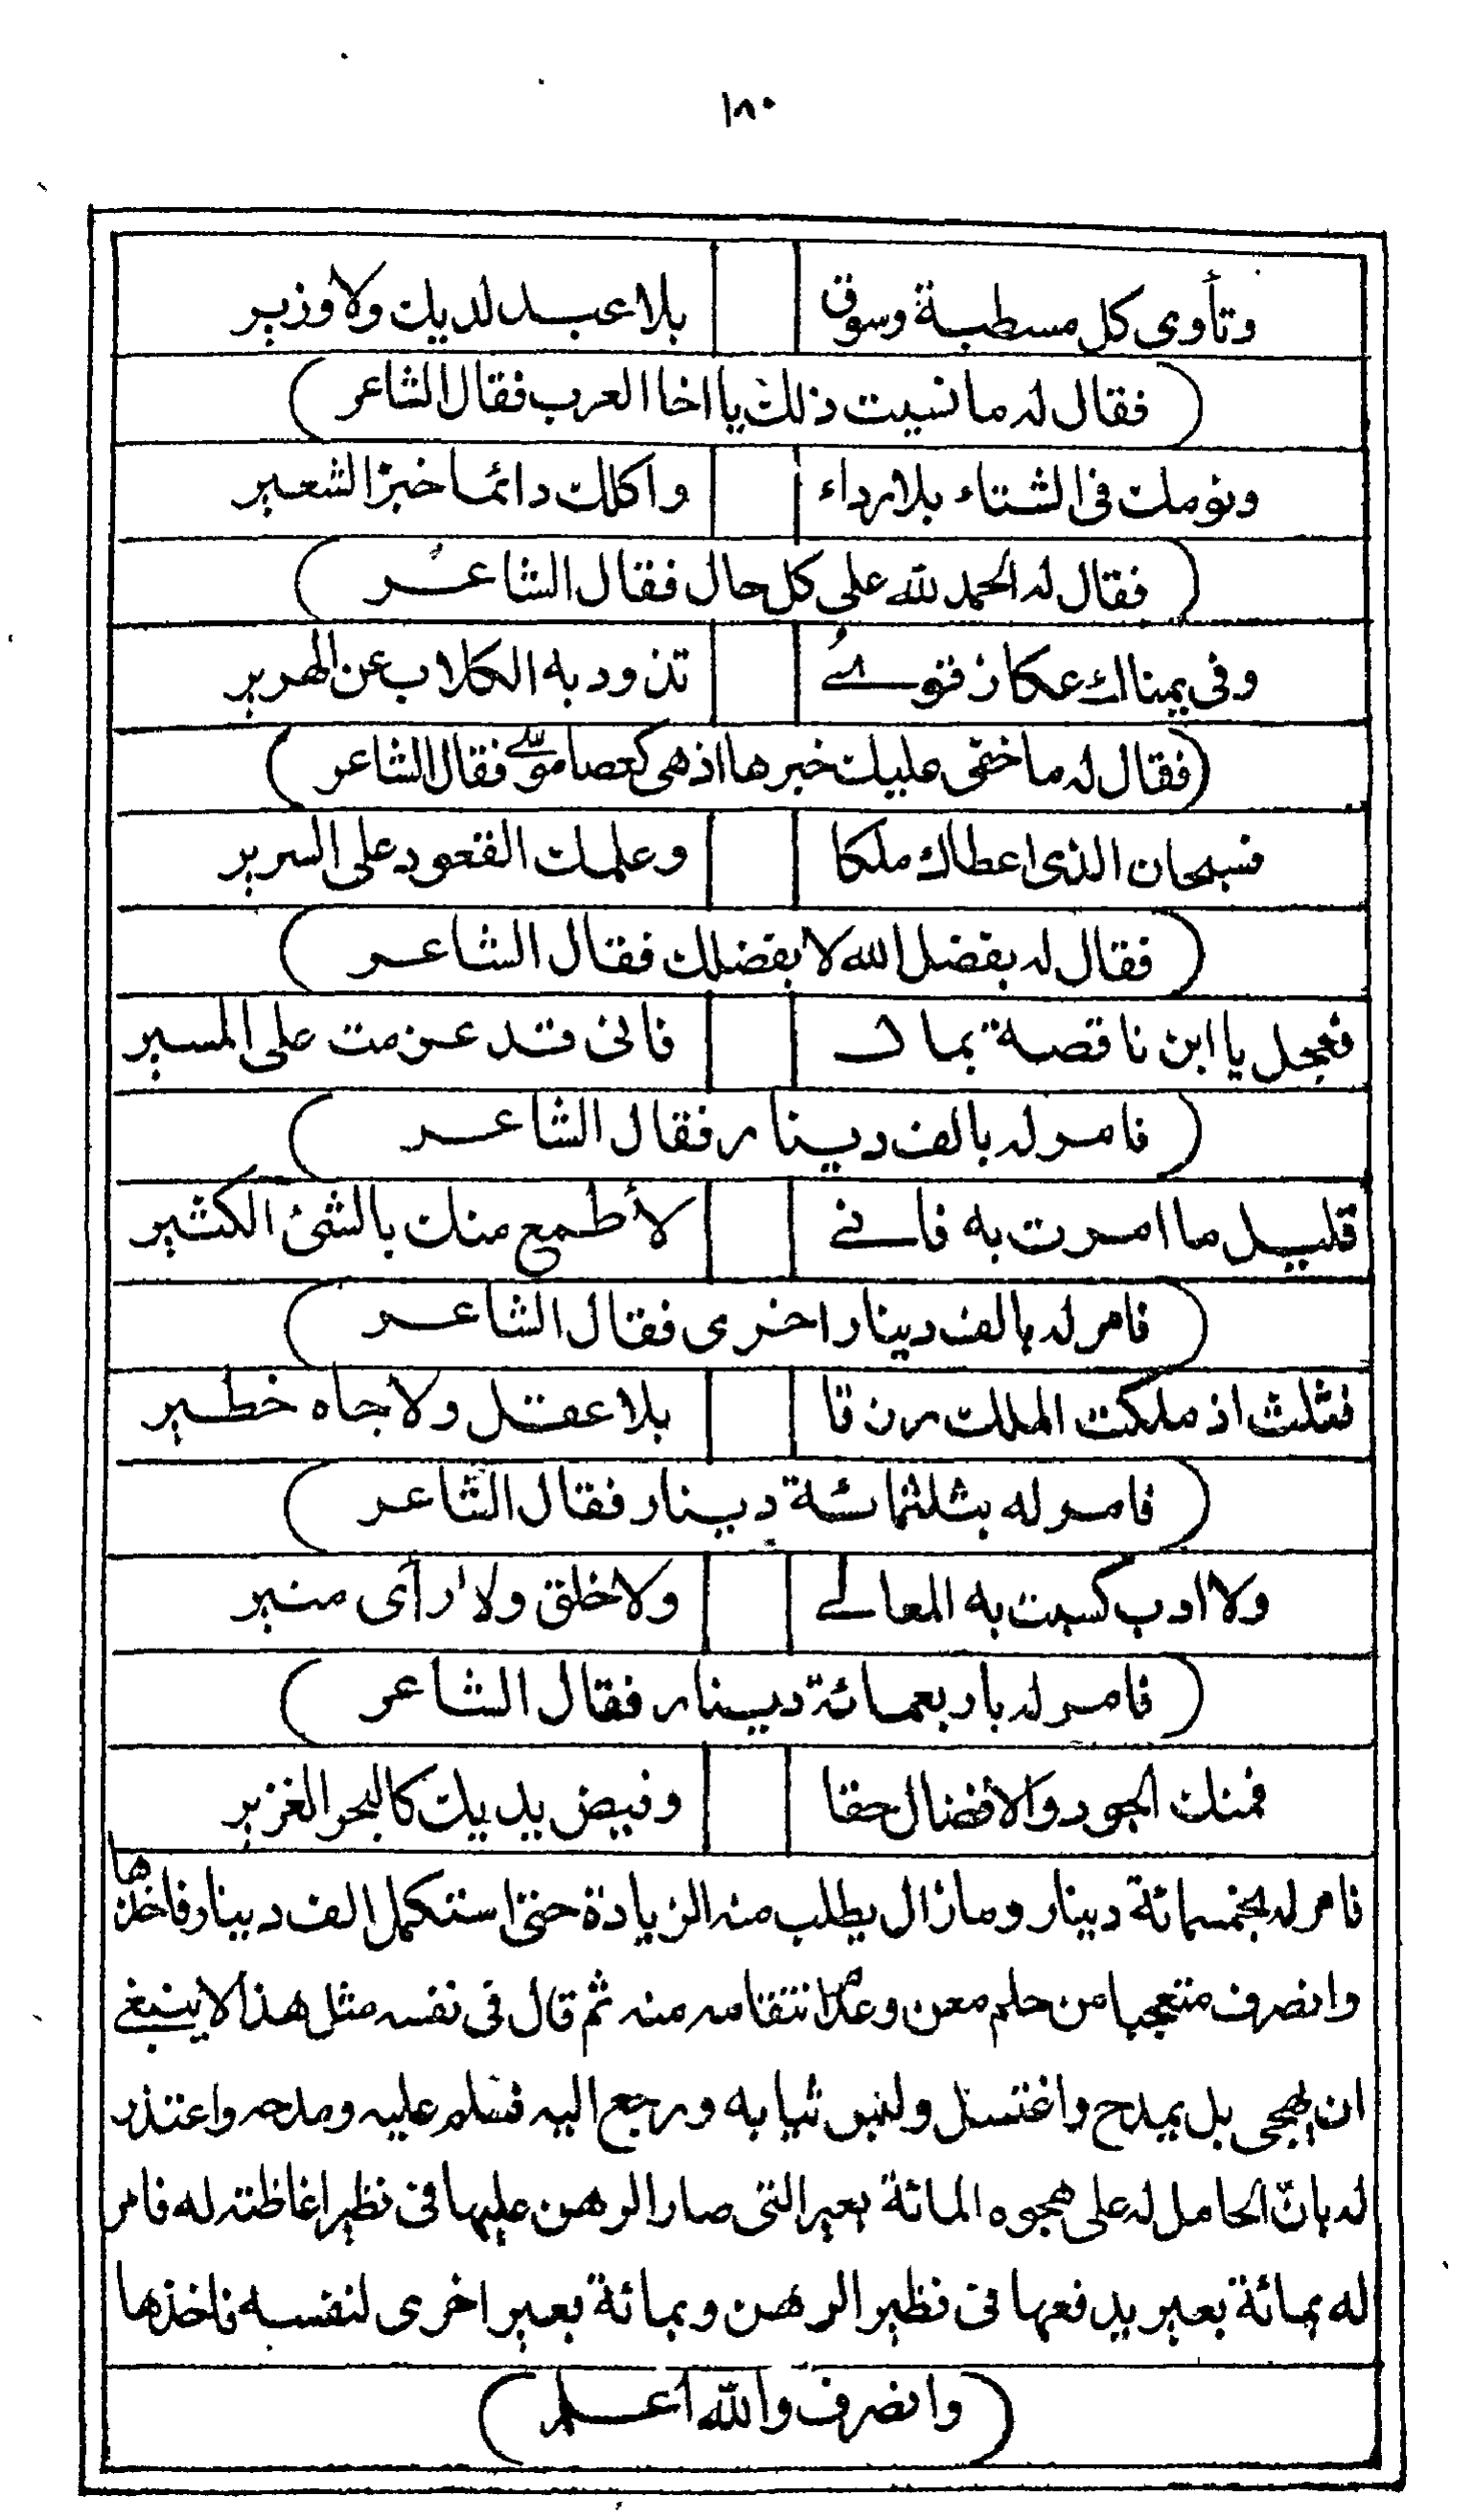 ١٨٠
وتأوى كل مسطبة وسوق بلا عبد لديك ولا وزير
(فقال له ما نسيت ذلك يا اخا العرب فقال الشاعر)
ونومك فى الشتاء بلا رداء واكلك دائما خبز الشعير
(فقال له الحمد لله على كل حال فقال الشاعر)
وفى يمناك عكاز قوى تذود به الكلاب عن الهرير
(فقال له ما خفى عليك خبرها اذ هى كعصا موسى فقال الشاعر)
فسبحان الذى اعطاك ملكا وعلمك القعود على السرير
(فقال له بفضل الله لا بفضلك فقال الشاعر)
فعجل يا ابن ناقصة بمال فانى قد عزمت على المسير
(فامر له بالف دينار فقال الشاعر)
قليل ما امرت به فانى لأطمع منك بالشئ الكثير
(فامر له بالف دينار اخرى فقال الشاعر)
فثلث اذ ملكت الملك رزقا بلا عقل ولا جاه خطير
(فامر له بثلثمائة دينار فقال الشاعر)
ولا ادب كسبت به المعالى ولا خلق ولا رأى منير
(فامر له باربعمائة دينار فقال الشاعر)
فمنك الجود والأفضال حقا وفيض يديك كالبحر الغزير
فامر له بخمسمائة دينار ومازال يطلب منه الزيادة حتى استكمل الف دينار فاخذها
وانصرف متعجبا من حلم معن وعدم انتقامه منه ثم قال فى نفسه مثل هذا لا ينبغى
ان يهجى بل يمدح واغتسل ولبس ثيابه ورجع اليه فسلم عليه ومدحه واعتذر
له بانّ الحامل له على هجوه المائة بعير التى صار الرهن عليها فى نظير اغاظته له فامر
له بمائة بعير يدفعها فى نظير الرهن وبمائة بعير اخرى لنفسه فاخذها
(وانصرف والله اعلم)